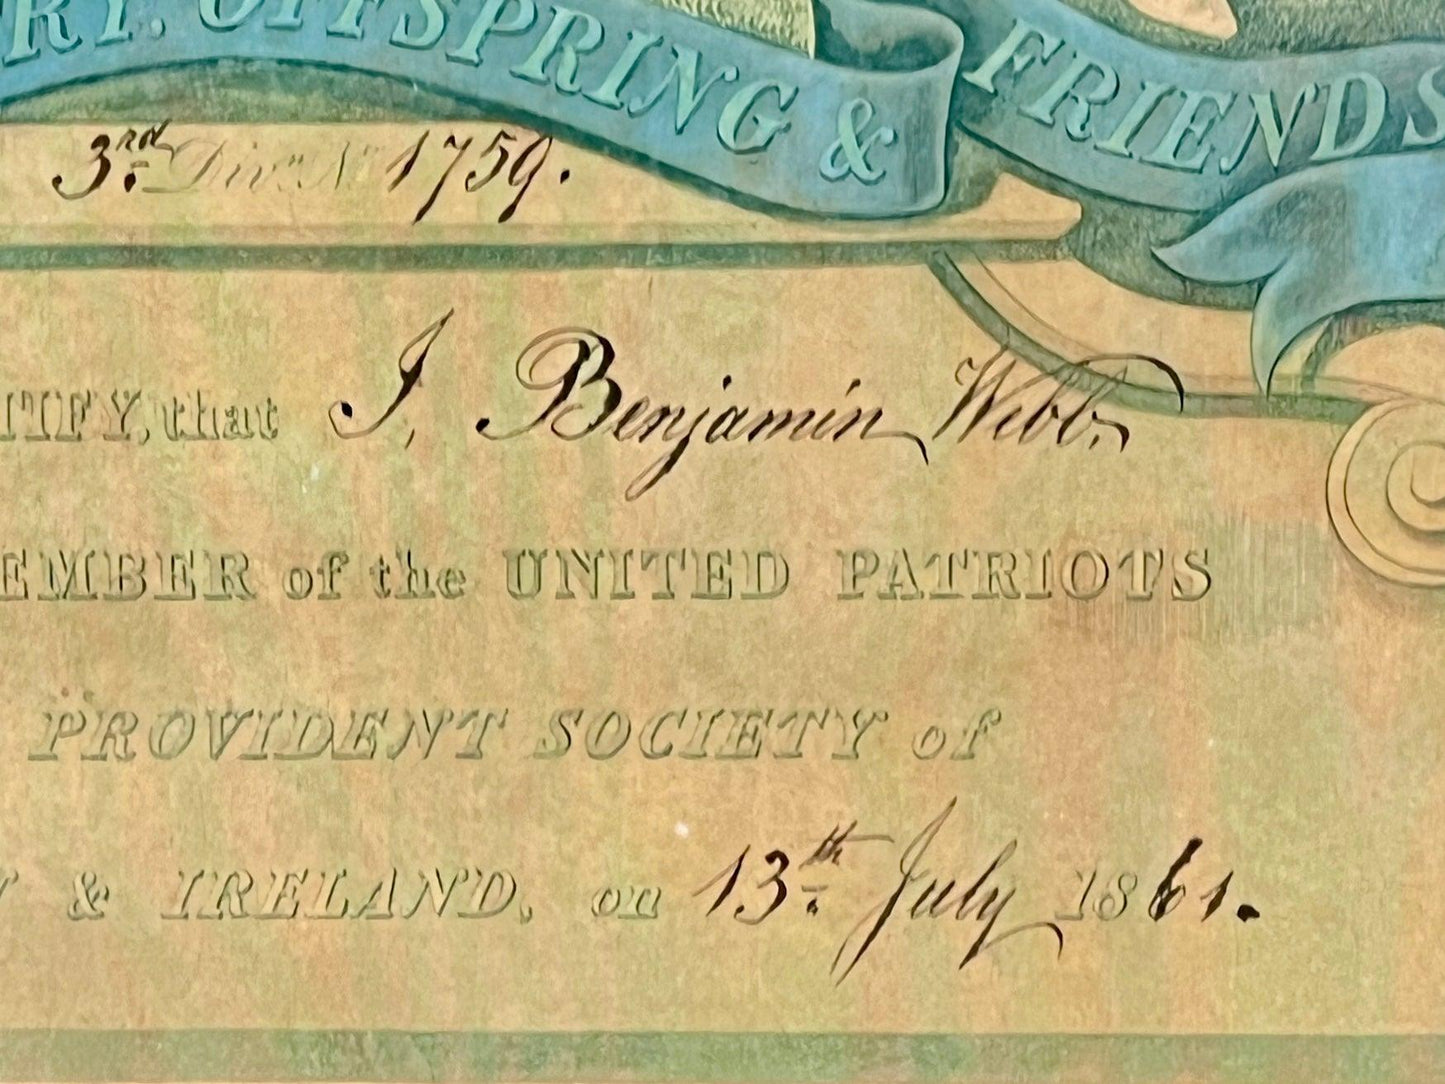 RY. OFFSPRING & FRIENDS
3rd. Divn. No. 1759.
TIFY, that J, Benjamin Webb,
EMBER of the UNITED PATRIOTS
PROVIDENT SOCIETY of
& IRELAND, on 13th. July 1861.